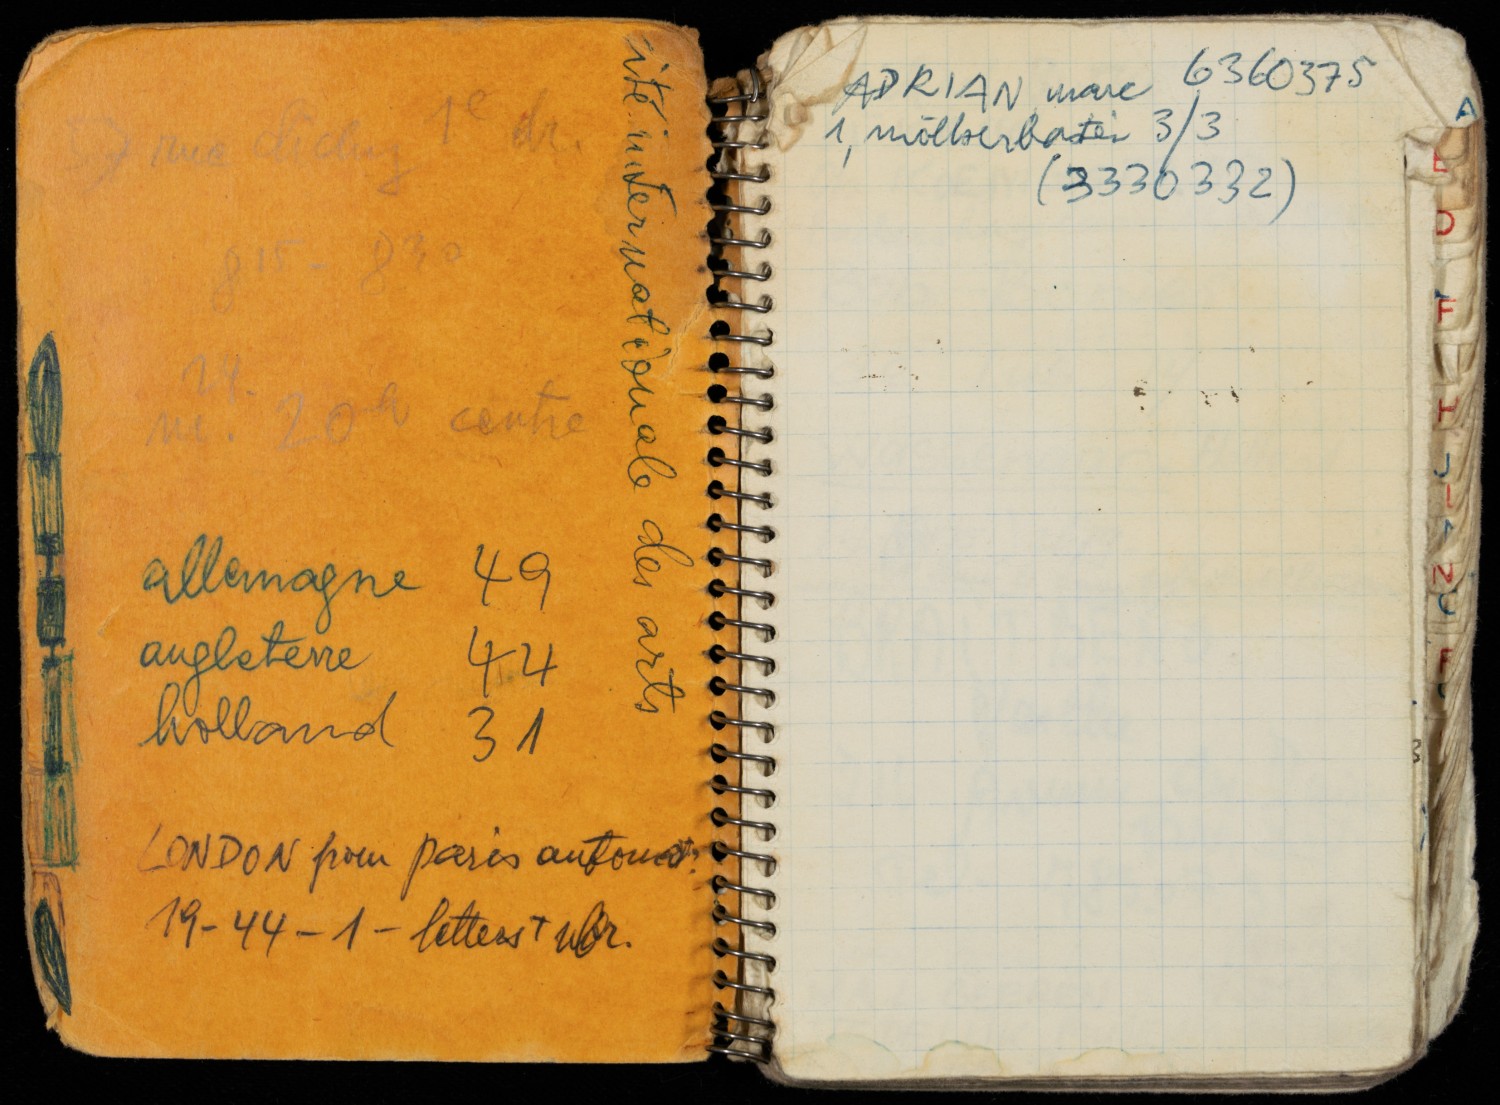 rue clichy 1e dr.
8 15 - 8 30
24.
m. 20h centre
cité internationale des arts
allemagne 49
angleterre 44
holland 31
LONDON from paris automat.
19-44-1- letters+ nbr.
ADRIAN marc 6360375
1, 3/3
(3330332)
A
E
D
F
H
J
I
N
O
P
3